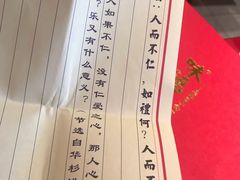 ：人而不仁，如禮何？人而
人如果不仁，没有仁爱之心，那人心
？乐又有什么意义？（节选自华杉